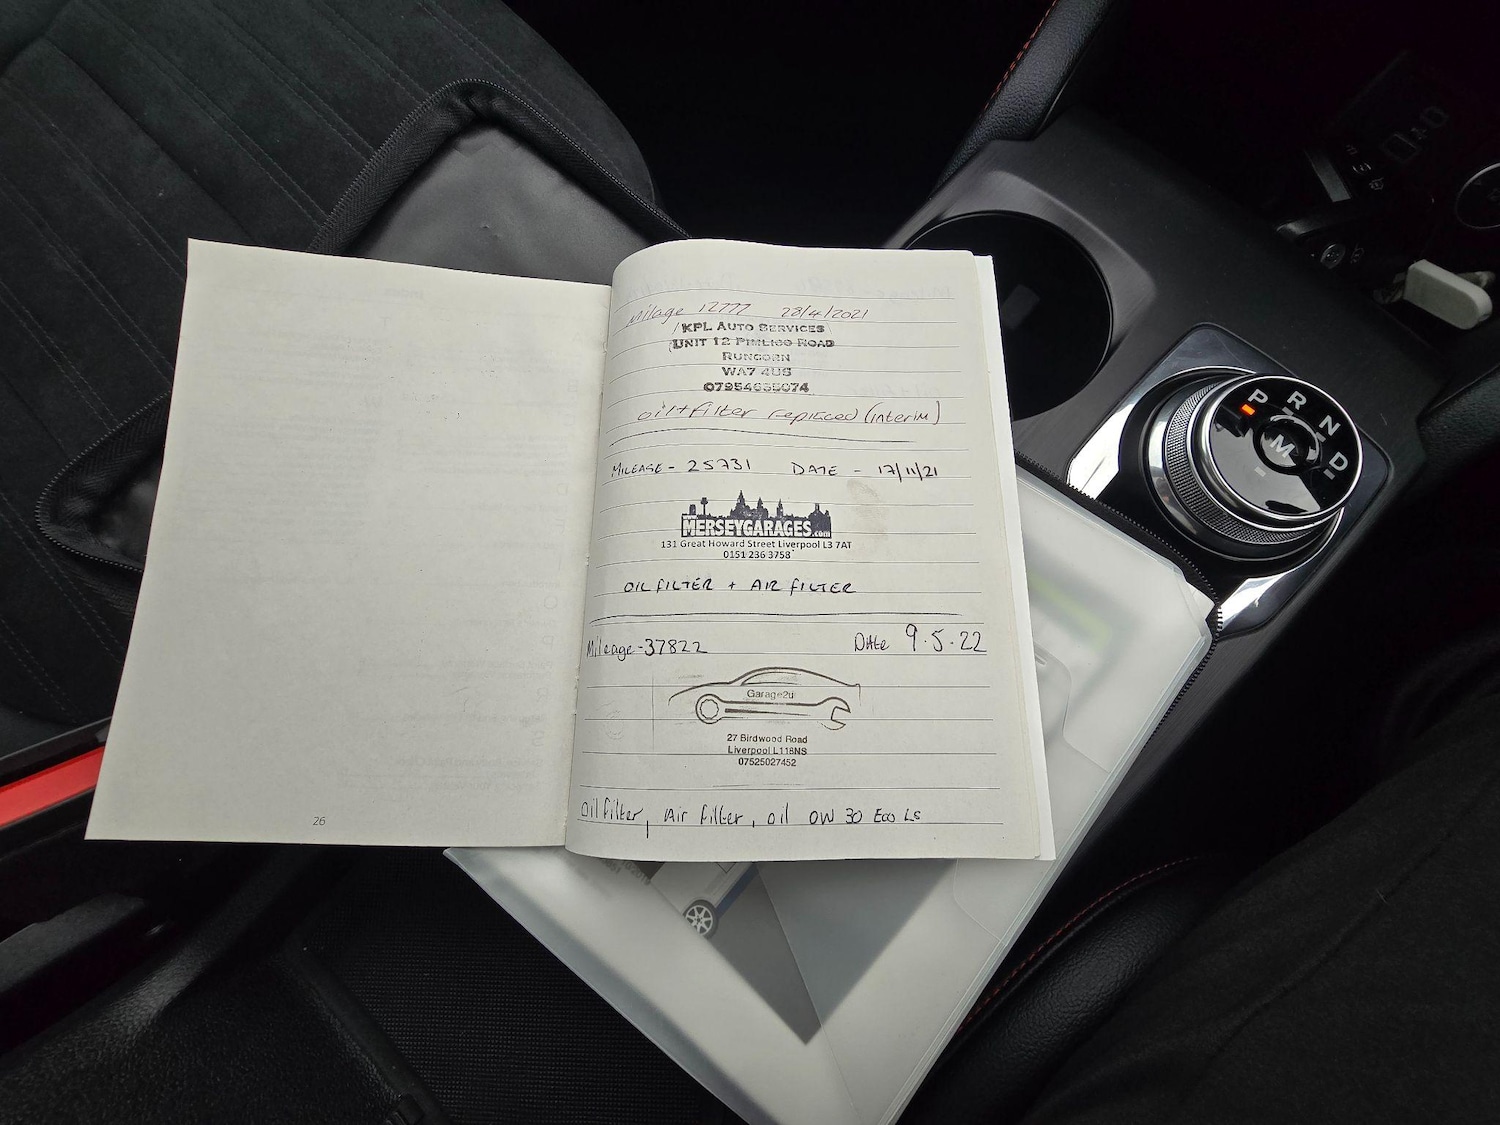 26
Milage 12777 28/4/2021
KPL AUTO SERVICES
UNIT 12 PIMLICO ROAD
RUNCORN
WA7 4US
oil+filter replaced (interim)
MILEAGE - 25731 DATE - 17/11/21
MERSEYGARAGES.com
131 Great Howard Street Liverpool L3 7AT
0151 236 3758
OIL FILTER + AIR FILTER
Mileage-37822 Date 9.5.22
Garage2u
27 Birdwood Road
Liverpool L118NS
07525027452
Oil filter, Air filter, oil 0W 30 Eco LS
P R N D
M